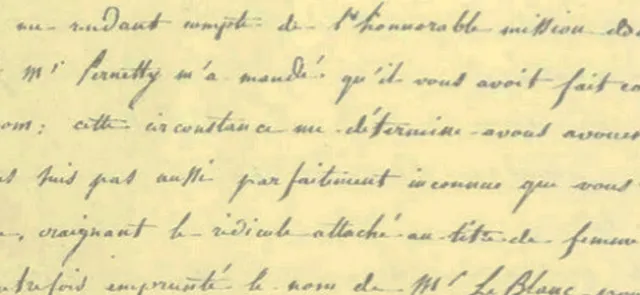 me rendant compte de l'honnorable mission
Mr Pernetty m'a mandé qu'il vous avoit fait
; cette circonstance me détermine avous avouer
suis pas aussi parfaitement inconnue que vous
, craignant le ridicule attaché au titre de femme
emprunté le nom de Mr LeBlanc